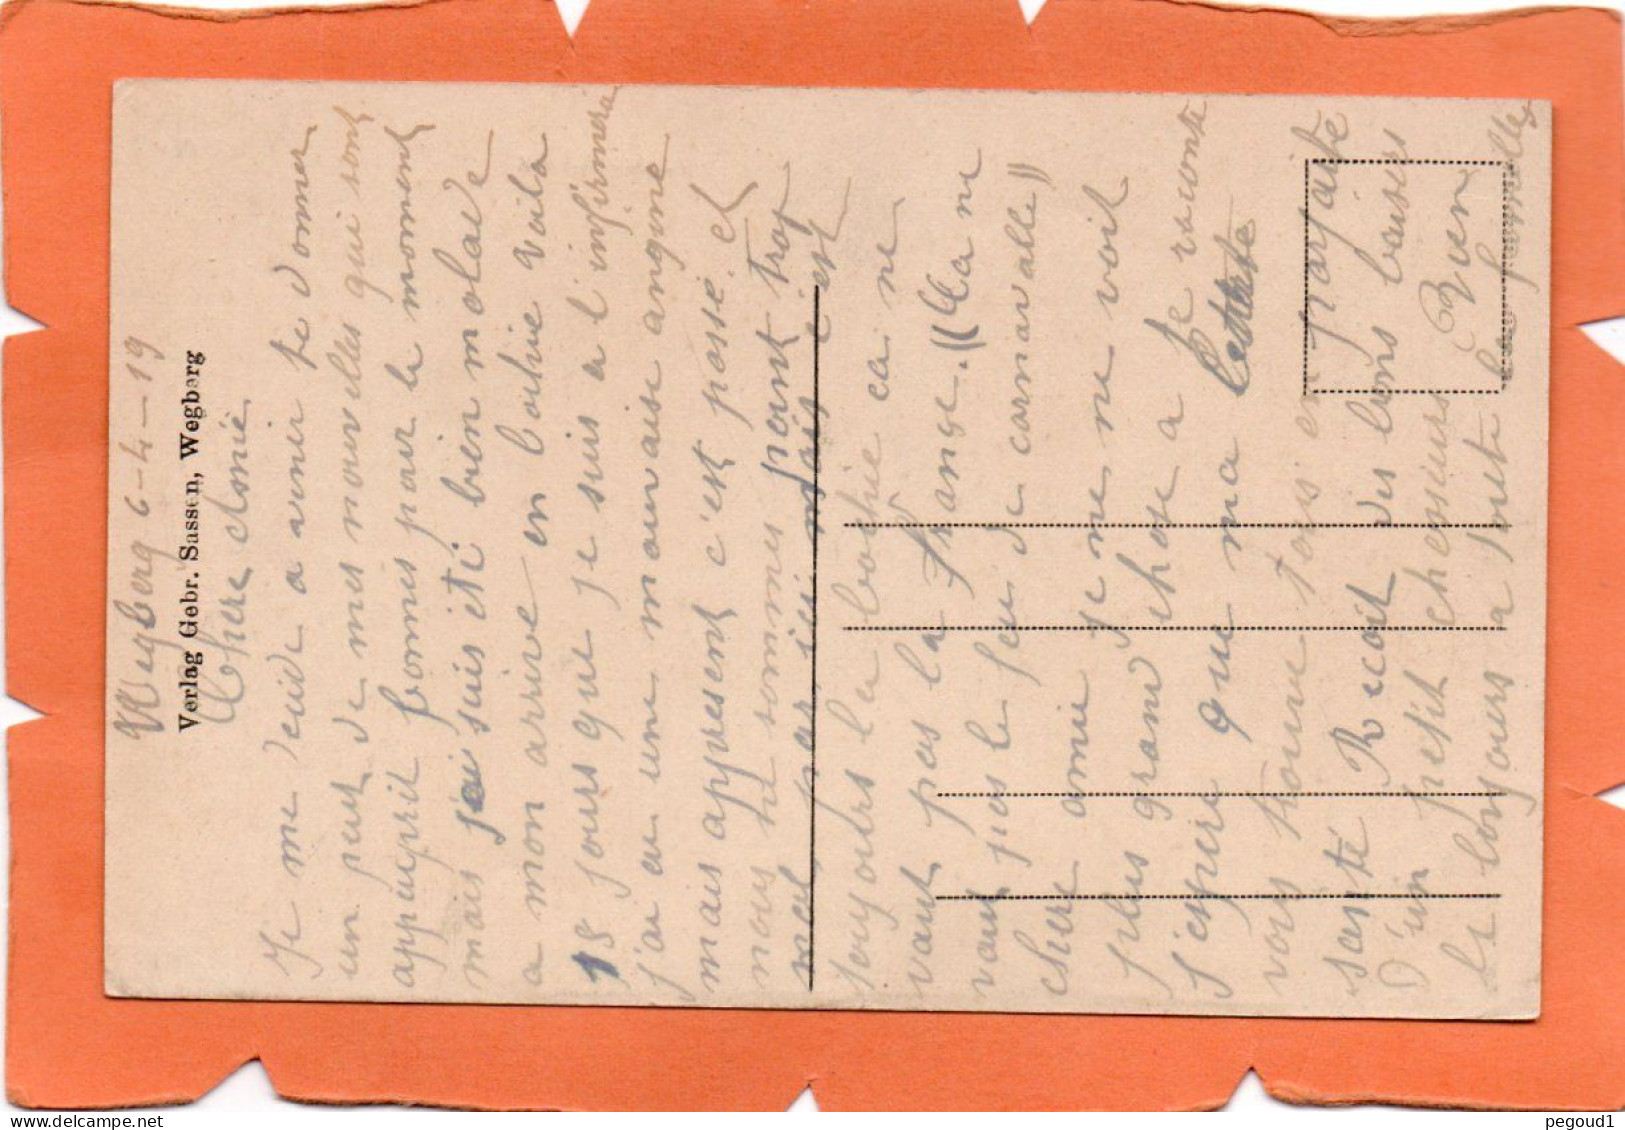 Wegberg 6-4-19
Verlag Gebr. Sassen, Wegberg
Chere Amie
Je me decide a venir te donner
un peut de mes nouvelles qui sont
bonnes pour le moment
mais j'ai suis eté bien malade
a mon arrive en bochie voila
18 jours que je suis a l'infirmerie
j'ai eu une mauvaise angine
mais appresent c'est passé et
nous ne sommes point trop
mal mais c'est
toujours la bochie ca ne
vaut pas la France. ((Ca ne
vaut pas le jeu de carnavalle))
chere amie je ne ne voit
plus grand chose a te raconte
j'espere que ma lettre
vous trouve tous en parfaite
santé Recoit des bons baisers
D'un petit chesseurs Bien
le bonjours a toute la famille
pegoud1
delcampe.net